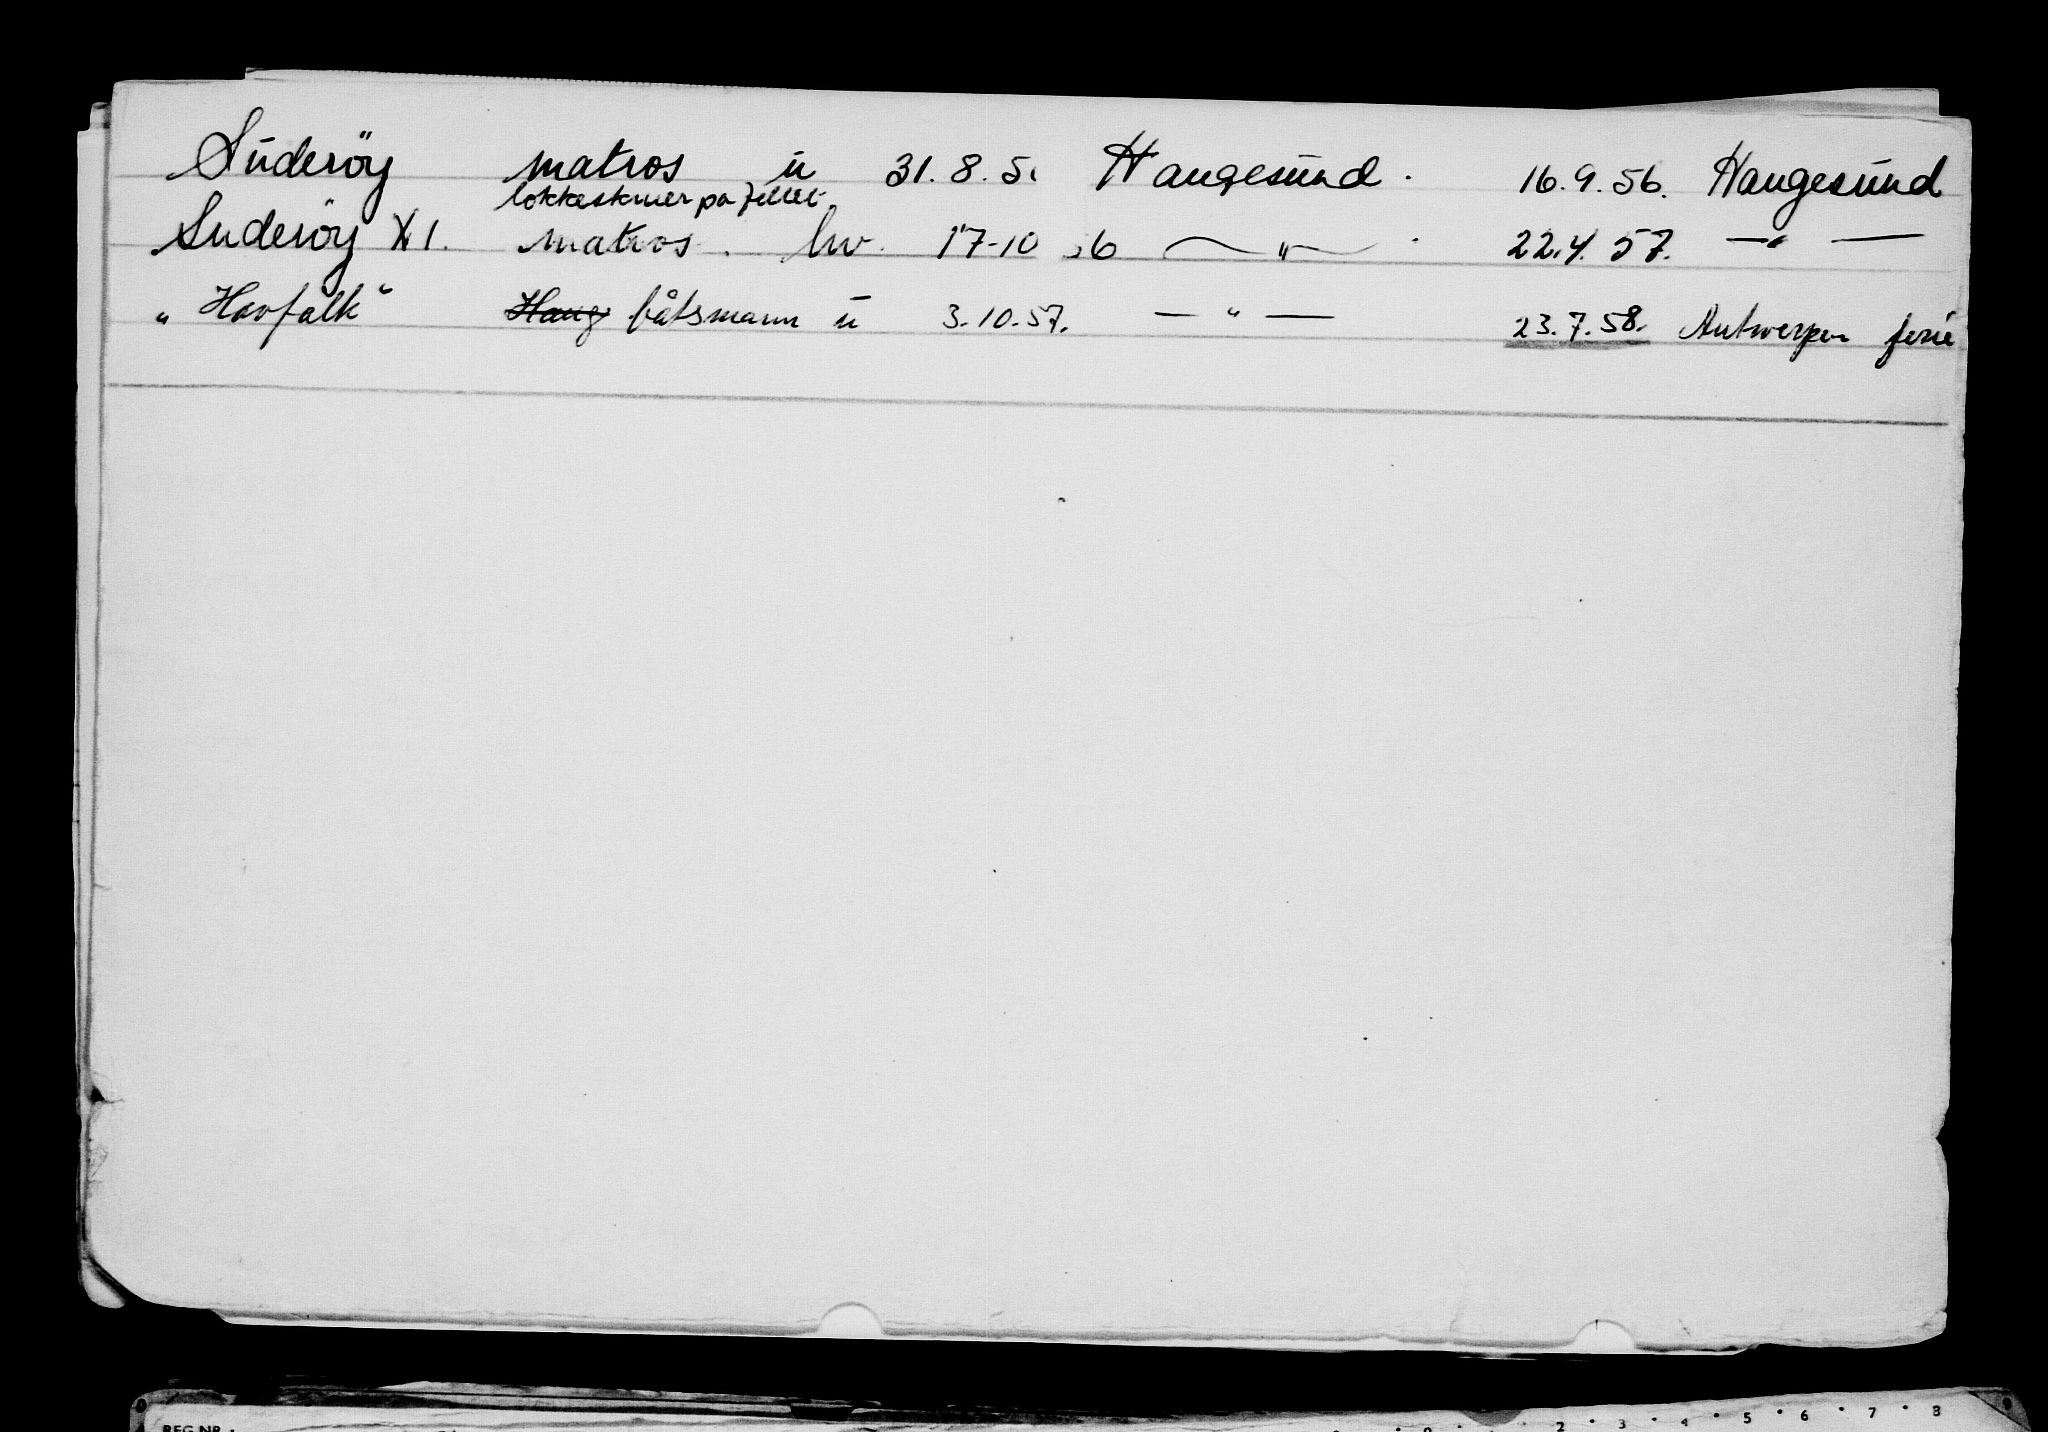 Süderöy matros ü 31.8.5. Haugesünd. 16.9.56. Haugesünd
lokkeskruer på
Suderöy XI. matros. hv. 17-10 56 — " — . 22.4.57. — " —
"Havfalk" Haug båtsmann ü 3.10.57. — " — 23.7.58. Antwerpen ferie
REG.NR.
2 • 3 • 4 • 5 • 6 • 7 • 8